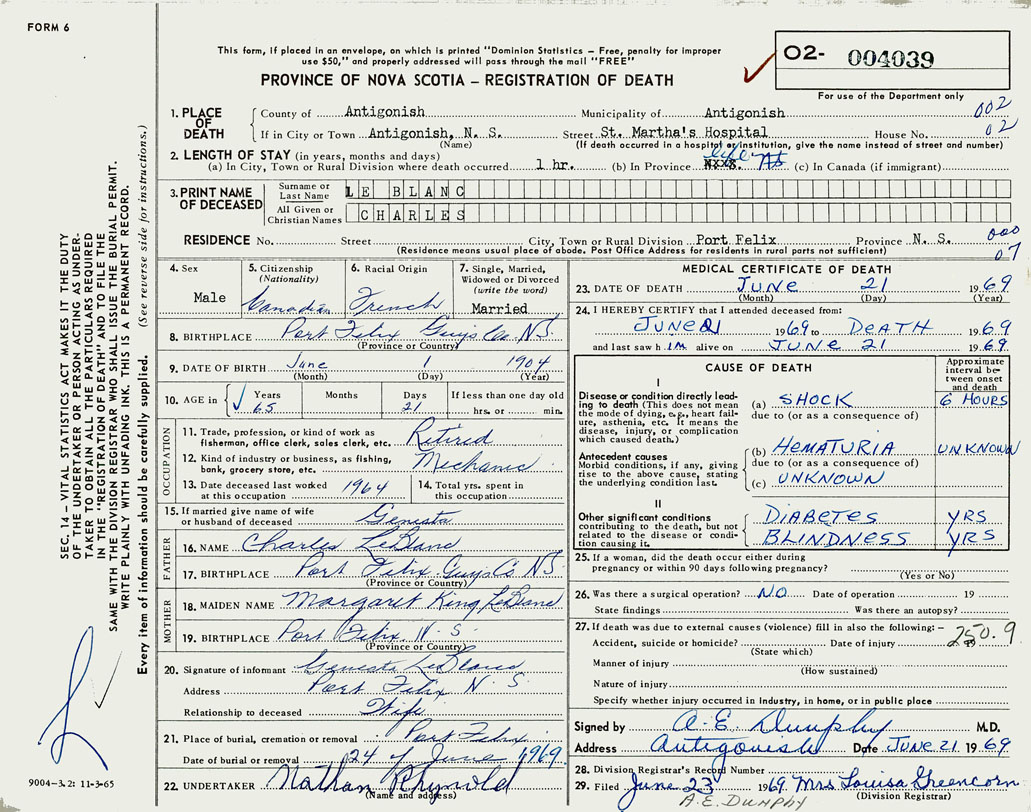 FORM 6
This form, if placed in an envelope, on which is printed "Dominion Statistics - Free, penalty for improper
use $50," and properly addressed will pass through the mail "FREE"
PROVINCE OF NOVA SCOTIA - REGISTRATION OF DEATH
O2- 004039
For use of the Department only
SEC. 14 - VITAL STATISTICS ACT MAKES IT THE DUTY
OF THE UNDERTAKER OR PERSON ACTING AS UNDER-
TAKER TO OBTAIN ALL THE PARTICULARS REQUIRED
IN THE "REGISTRATION OF DEATH" AND TO FILE THE
SAME WITH THE DIVISION REGISTRAR WHO SHALL ISSUE THE BURIAL PERMIT.
WRITE PLAINLY WITH UNFADING INK. THIS IS A PERMANENT RECORD.
Every item of information should be carefully supplied. (See reverse side for instructions.)
9004-3.2: 11-3-65
1. PLACE OF DEATH
County of Antigonish Municipality of Antigonish 002
If in City or Town Antigonish, N. S. Street St. Martha's Hospital House No. 02
(Name) (If death occurred in a hospital or institution, give the name instead of street and number)
2. LENGTH OF STAY (in years, months and days) life
(a) In City, Town or Rural Division where death occurred 1 hr. (b) In Province (c) In Canada (if immigrant)
3. PRINT NAME OF DECEASED
Surname or Last Name LE BLANC
All Given or Christian Names CHARLES
RESIDENCE No. Street City, Town or Rural Division Port Felix Province N. S. 000
(Residence means usual place of abode. Post Office Address for residents in rural parts not sufficient) 07
4. Sex Male
5. Citizenship (Nationality) Canadian
6. Racial Origin French
7. Single, Married, Widowed or Divorced (write the word) Married
8. BIRTHPLACE Port Felix Guys Co N.S.
(Province or Country)
9. DATE OF BIRTH June 1 1904
(Month) (Day) (Year)
10. AGE in Years 65 Months Days 21 If less than one day old hrs. or min.
OCCUPATION
11. Trade, profession, or kind of work as fisherman, office clerk, sales clerk, etc. Retired
12. Kind of industry or business, as fishing, bank, grocery store, etc. Mechanic
13. Date deceased last worked at this occupation 1964
14. Total yrs. spent in this occupation
15. If married give name of wife or husband of deceased Genesta
FATHER
16. NAME Charles LeBlanc
17. BIRTHPLACE Port Felix Guys Co N.S.
(Province or Country)
MOTHER
18. MAIDEN NAME Margaret King LeBlanc
19. BIRTHPLACE Port Felix N. S.
(Province or Country)
20. Signature of informant Genesta LeBlanc
Address Port Felix N. S.
Relationship to deceased Wife
21. Place of burial, cremation or removal Port Felix
Date of burial or removal 24 of June 1969.
22. UNDERTAKER Nathan
(Name and address)
MEDICAL CERTIFICATE OF DEATH
23. DATE OF DEATH JUNE 21 1969
(Month) (Day) (Year)
24. I HEREBY CERTIFY that I attended deceased from:
JUNE 21 1969 to DEATH 1969
and last saw h im alive on JUNE 21 1969.
CAUSE OF DEATH
Approximate interval between onset and death
I
Disease or condition directly leading to death (This does not mean the mode of dying, e.g., heart failure, asthenia, etc. It means the disease, injury, or complication which caused death.)
(a) SHOCK 6 HOURS
due to (or as a consequence of)
Antecedent causes
Morbid conditions, if any, giving rise to the above cause, stating the underlying condition last.
(b) HEMATURIA UNKNOWN
due to (or as a consequence of)
(c) UNKNOWN
II
Other significant conditions contributing to the death, but not related to the disease or condition causing it.
DIABETES YRS
BLINDNESS YRS
25. If a woman, did the death occur either during pregnancy or within 90 days following pregnancy?
(Yes or No)
26. Was there a surgical operation? NO Date of operation 19
State findings Was there an autopsy?
27. If death was due to external causes (violence) fill in also the following: -
Accident, suicide or homicide? Date of injury 250.9
(State which)
Manner of injury
(How sustained)
Nature of injury
Specify whether injury occurred in industry, in home, or in public place
Signed by A. E. Dunphy M.D.
Address Antigonish Date JUNE 21 1969
28. Division Registrar's Record Number
29. Filed June 23 1969. Mrs Louisa Greencorn
(Division Registrar)
A.E. DUNPHY